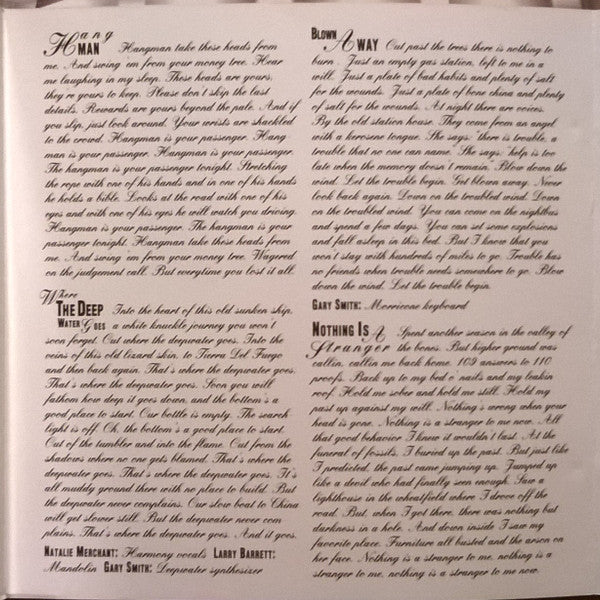 Hang
MAN Hangman take these heads from
me. And swing 'em from your money tree. Hear
me laughing in my sleep. These heads are yours,
they're yours to keep. Please don't skip the last
details. Rewards are yours beyond the pale. And if
you slip, just look around. Your wrists are shackled
to the crowd. Hangman is your passenger. Hang-
man is your passenger. Hangman is your passenger.
The hangman is your passenger tonight. Stretching
the rope with one of his hands and in one of his hands
he holds a bible. Looks at the road with one of his
eyes and with one of his eyes he will watch you driving.
Hangman is your passenger. The hangman is your
passenger tonight. Hangman take these heads from
me. And swing 'em from your money tree. Wagered
on the judgement call. But everytime you lost it all.
Where
THE DEEP Into the heart of this old sunken ship,
WATER Goes a white knuckle journey you won't
soon forget. Out where the deepwater goes. Into the
veins of this old lizard skin, to Tierra Del Fuego
and then back again. That's where the deepwater goes.
That's where the deepwater goes. Soon you will
fathom how deep it goes down, and the bottom's a
good place to start. Our bottle is empty. The search
light is off. Oh, the bottom's a good place to start.
Out of the tumbler and into the flame. Out from the
shadows where no one gets blamed. That's where the
deepwater goes. That's where the deepwater goes. It's
all muddy ground there with no place to build. But
the deepwater never complains. Our slow boat to China
will get slower still. But the deepwater never com
plains. That's where the deepwater goes. And it goes.
NATALIE MERCHANT: Harmony vocals LARRY BARRETT:
Mandolin GARY SMITH: Deepwater synthesizer
BLOWN
AWAY Out past the trees there is nothing to
burn. Just an empty gas station, left to me in a
will. Just a plate of bad habits and plenty of salt
for the wounds. Just a plate of bone china and plenty
of salt for the wounds. At night there are voices.
By the old station house. They come from an angel
with a kerosene tongue. She says: 'there is trouble, a
trouble that no one can name.' She says: 'help is too
late when the memory doesn't remain.' Blow down the
wind. Let the trouble begin. Get blown away. Never
look back again. Down on the troubled wind. Down
on the troubled wind. You can come on the nightbus
and spend a few days. You can set some explosions
and fall asleep in this bed. But I know that you
won't stay with hundreds of miles to go. Trouble has
no friends when trouble needs somewhere to go. Blow
down the wind. Let the trouble begin.
GARY SMITH: Morricone keyboard
NOTHING IS A Spent another season in the valley of
Stranger the bones. But higher ground was
callin, callin me back home. 109 answers to 110
proofs. Back up to my bed o' nails and my leakin
roof. Hold me sober and hold me still. Hold my
past up against my will. Nothing's wrong when your
head is gone. Nothing is a stranger to me now. All
that good behavior I knew it wouldn't last. At the
funeral of fossils, I buried up the past. But just like
I predicted, the past came jumping up. Jumped up
like a devil who had finally seen enough. Saw a
lighthouse in the wheatfield where I drove off the
road. But, when I got there, there was nothing but
darkness in a hole. And down inside I saw my
favorite place. Furniture all busted and the arson on
her face. Nothing is a stranger to me, nothing is a
stranger to me, nothing is a stranger to me now.